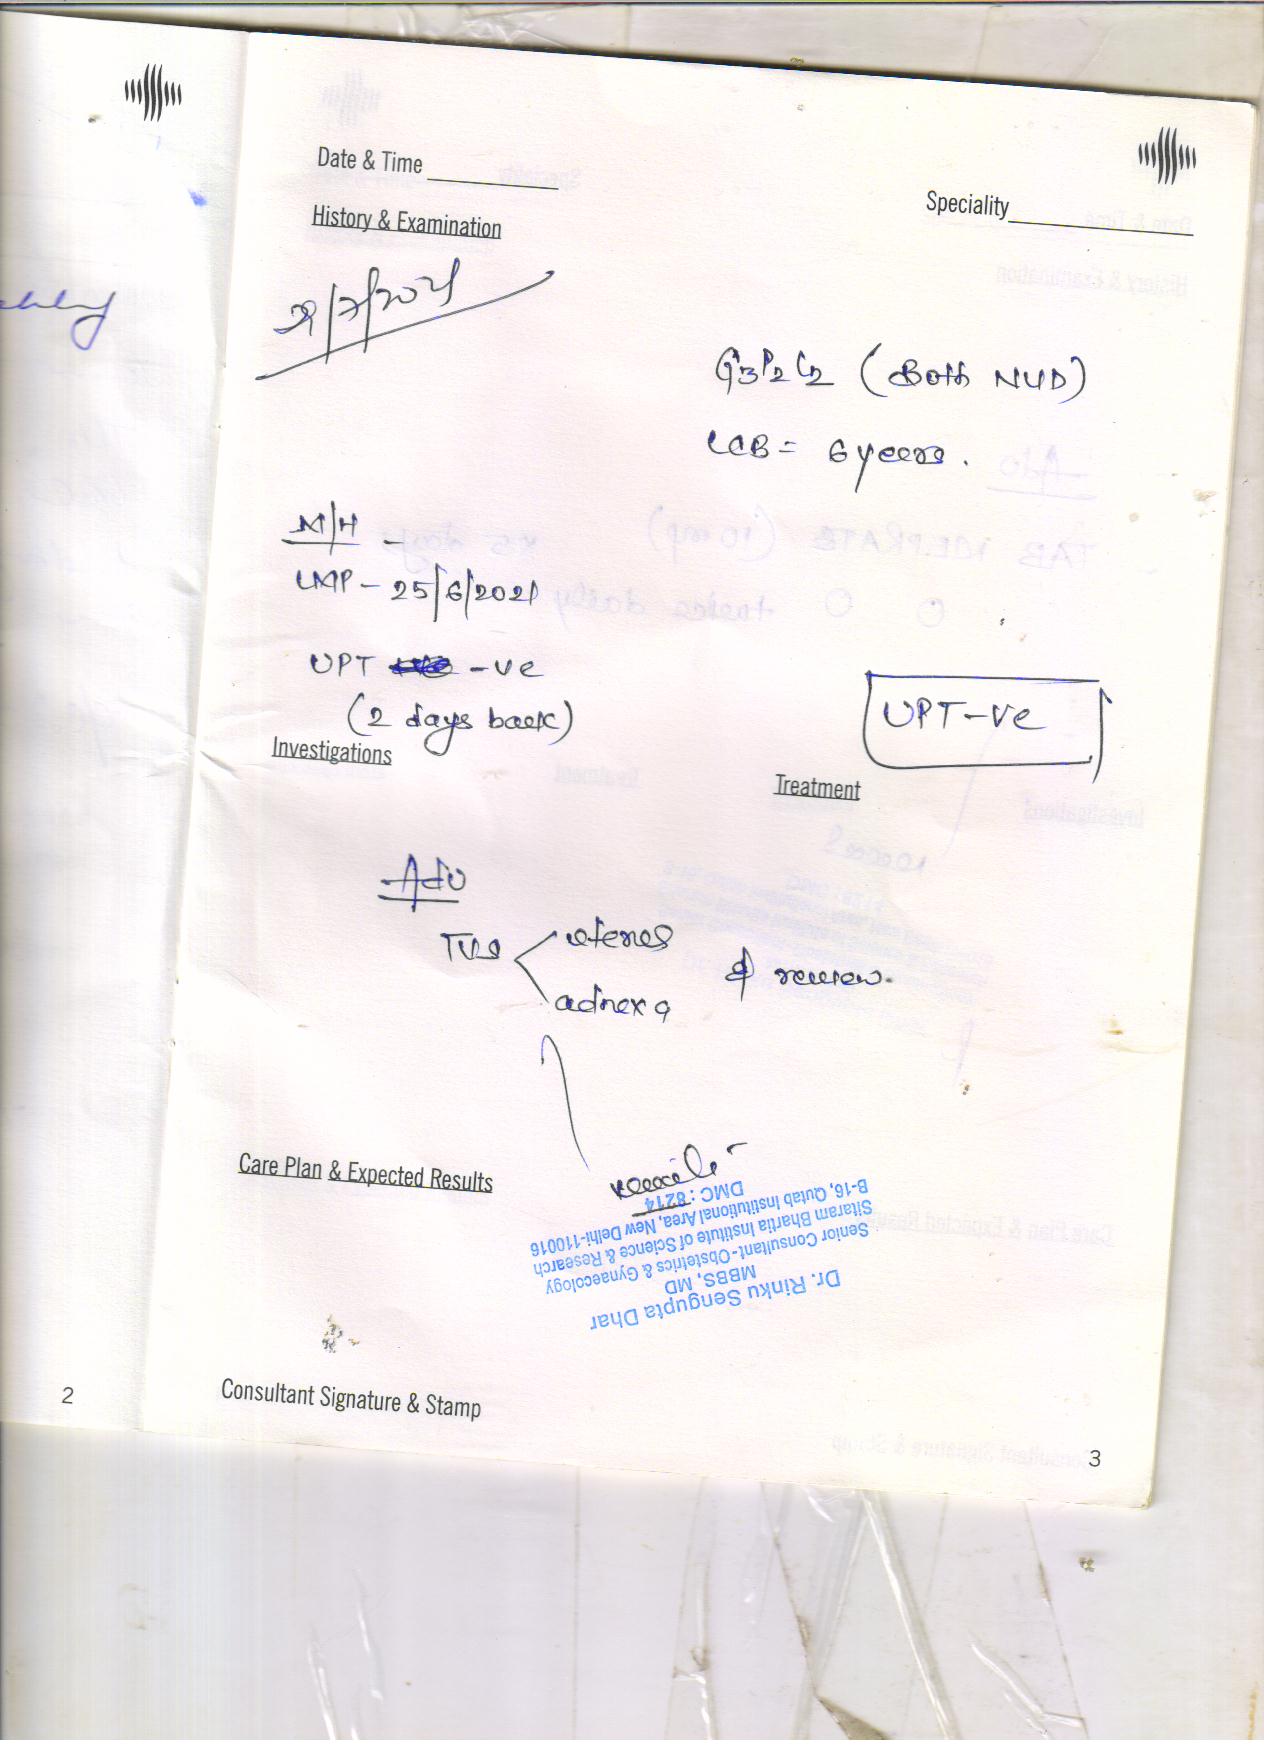 Date & Time
Speciality
History & Examination
G3P2L2 (Both NVD)
LCB = 6 years.
M/H -
LMP - 25/6/2021
UPT -ve
(2 days back)
UPT-ve
Investigations
Treatment
Adv
TVS uterus
adnexa
& review.
Care Plan & Expected Results
Dr. Rinku Sengupta Dhar
MBBS, MD
Senior Consultant-Obstetrics & Gynaecology
Sitaram Bhartia Institute of Science & Research
B-16, Qutab Institutional Area, New Delhi-110016
DMC : 8214
Consultant Signature & Stamp
2
3